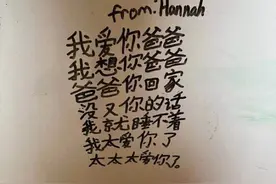 from: Hannah
我爱你爸爸
我想你爸爸
爸爸你回家
没又你的话
我就睡不着
我太爱你了
太太太爱你了。